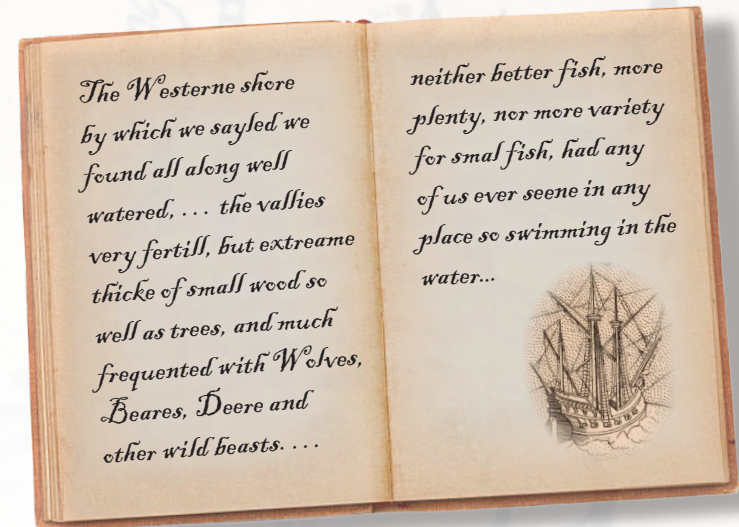 The Westerne shore
by which we sayled we
found all along well
watered, . . . the vallies
very fertill, but extreame
thicke of small wood so
well as trees, and much
frequented with Wolves,
Beares, Deere and
other wild beasts. . . .
neither better fish, more
plenty, nor more variety
for smal fish, had any
of us ever seene in any
place so swimming in the
water...